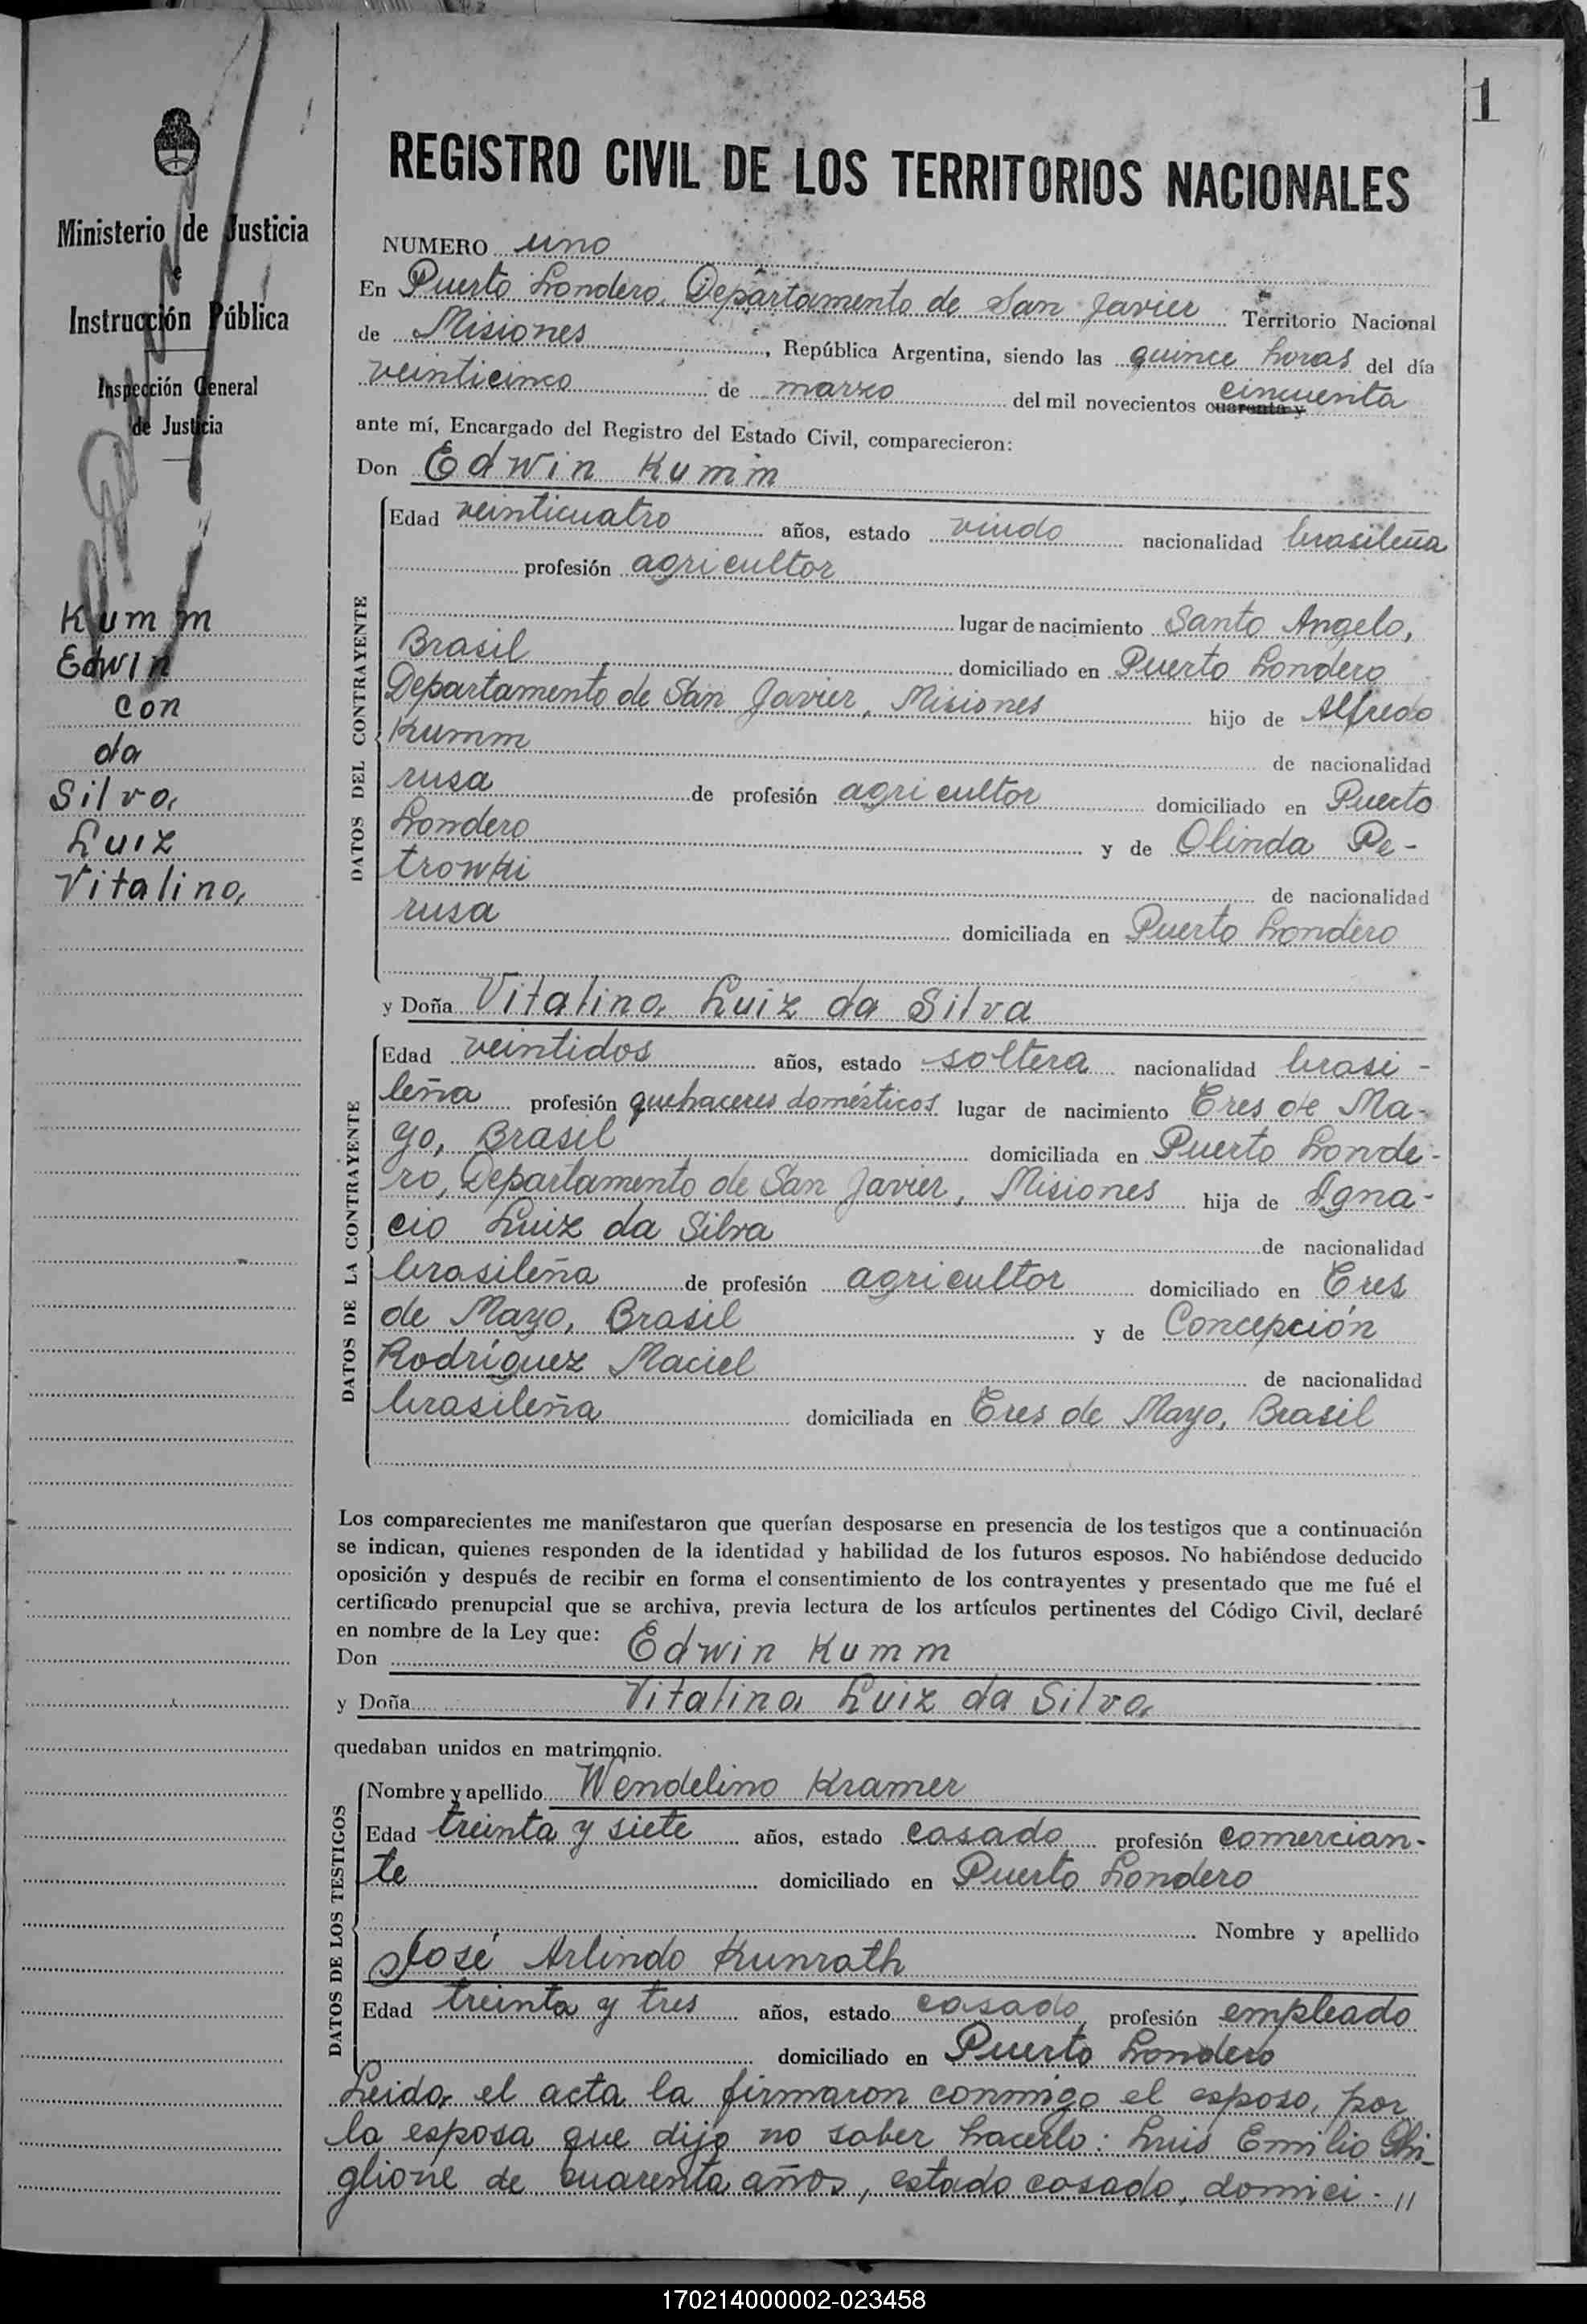 1
REGISTRO CIVIL DE LOS TERRITORIOS NACIONALES
Ministerio de Justicia
e
Instrucción Pública
Inspección General
de Justicia
Kumm
Edwin
con
da
Silva
Luiz
Vitalina
NUMERO uno
En Puerto Londero, Departamento de San Javier Territorio Nacional
de Misiones, República Argentina, siendo las quince horas del día
veinticinco de marzo del mil novecientos cuarenta y cincuenta
ante mí, Encargado del Registro del Estado Civil, comparecieron:
Don Edwin Kumm
DATOS DEL CONTRAYENTE
Edad veinticuatro años, estado viudo nacionalidad brasileña
profesión agricultor
lugar de nacimiento Santo Angelo,
Brasil domiciliado en Puerto Londero
Departamento de San Javier, Misiones hijo de Alfredo
Kumm de nacionalidad
rusa de profesión agricultor domiciliado en Puerto
Londero y de Olinda Pe-
trowki de nacionalidad
rusa domiciliada en Puerto Londero
y Doña Vitalina Luiz da Silva
DATOS DE LA CONTRAYENTE
Edad veintidos años, estado soltera nacionalidad brasi-
leña profesión quehaceres domésticos lugar de nacimiento Tres de Ma-
yo, Brasil domiciliada en Puerto Londe-
ro, Departamento de San Javier, Misiones hija de Igna-
cio Luiz da Silva de nacionalidad
brasileña de profesión agricultor domiciliado en Tres
de Mayo, Brasil y de Concepción
Rodríguez Maciel de nacionalidad
brasileña domiciliada en Tres de Mayo, Brasil
Los comparecientes me manifestaron que querían desposarse en presencia de los testigos que a continuación
se indican, quienes responden de la identidad y habilidad de los futuros esposos. No habiéndose deducido
oposición y después de recibir en forma el consentimiento de los contrayentes y presentado que me fué el
certificado prenupcial que se archiva, previa lectura de los artículos pertinentes del Código Civil, declaré
en nombre de la Ley que:
Don Edwin Kumm
y Doña Vitalina Luiz da Silva
quedaban unidos en matrimonio.
DATOS DE LOS TESTIGOS
Nombre y apellido Wendelino Kramer
Edad treinta y siete años, estado casado profesión comercian-
te domiciliado en Puerto Londero
Nombre y apellido
José Arlindo Kunrath
Edad treinta y tres años, estado casado profesión empleado
domiciliado en Puerto Londero
Leida el acta la firmaron conmigo el esposo, por
la esposa que dijo no saber hacerlo: Luis Emilio Ghi-
glione de cuarenta años, estado casado, domici-//
170214000002-023458